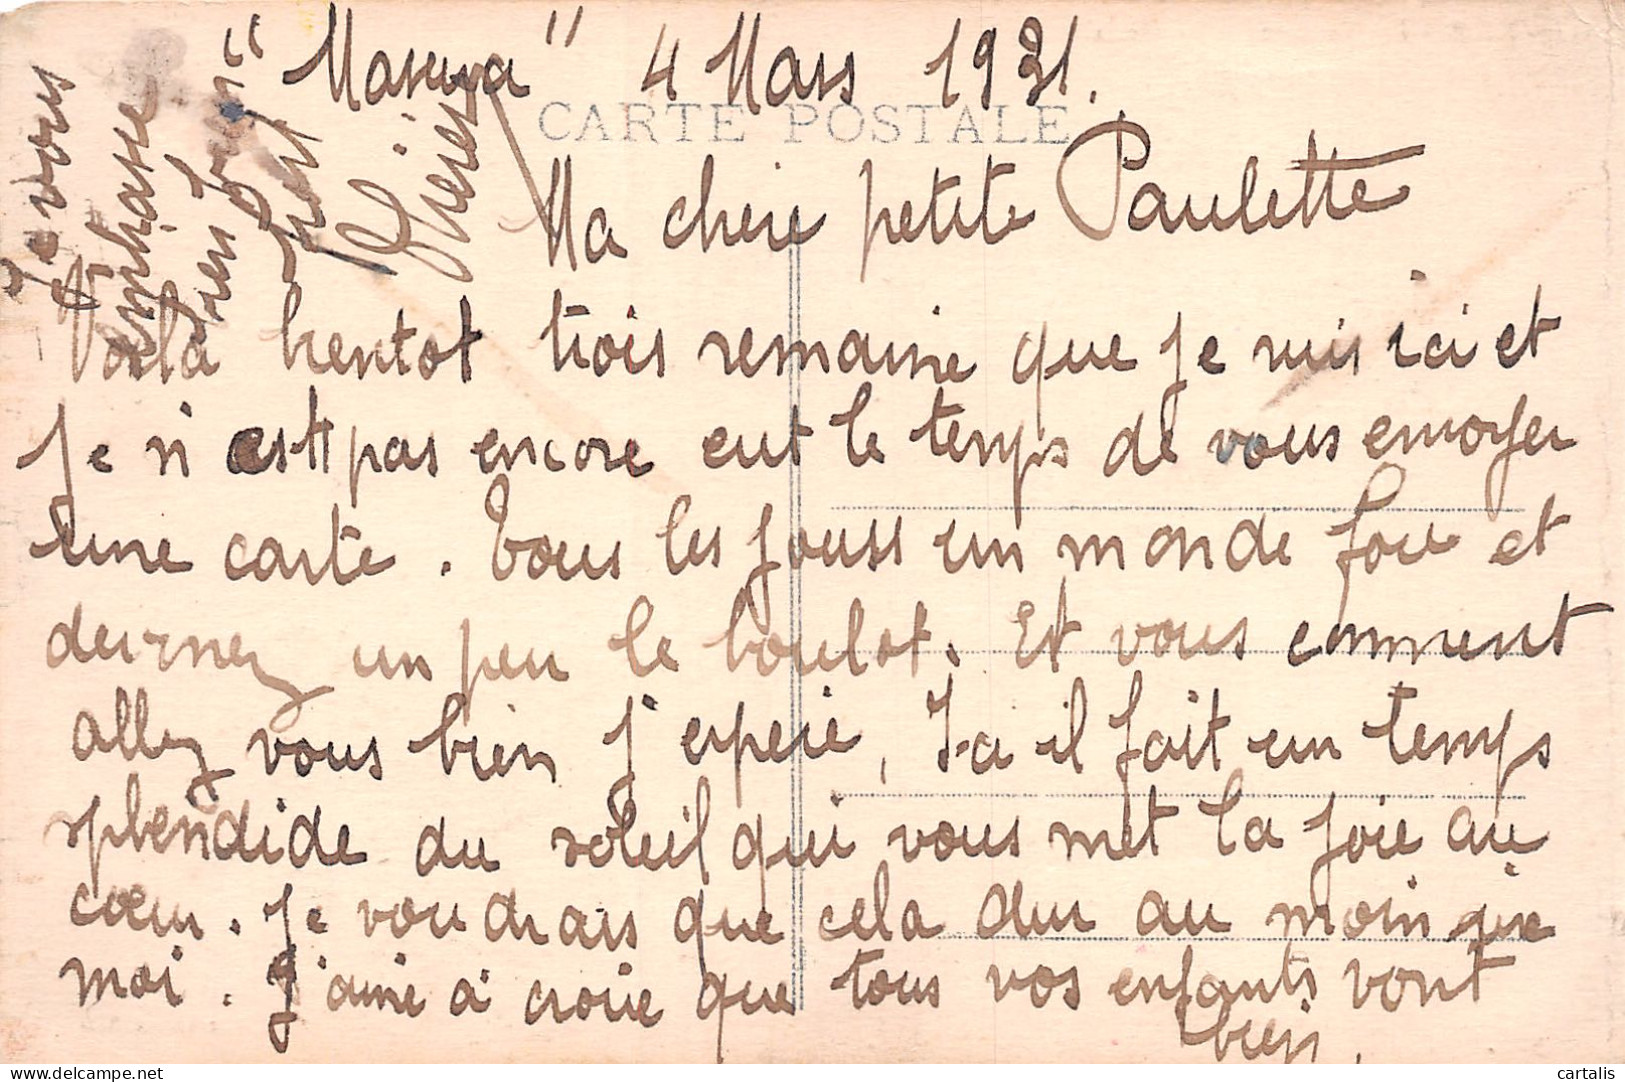 " Maseva " 4 Mars 1931.
CARTE POSTALE
Ma chere petite Paulette
Voila bientot trois semaine que je suis ici et
je n'est pas encore eut le temps de vous envoyer
une carte. Tous les jours un monde fou et
devinez un peu le boulot. Et vous comment
allez vous bien j'espere, Ici il fait un temps
splendide du soleil qui vous met la joie au
cœur. Je voudrais que cela dur au moin six
moi. J'aime à croire que tous vos enfants vont
bien.
Je vous
embrasse
bien
fort
cartalis